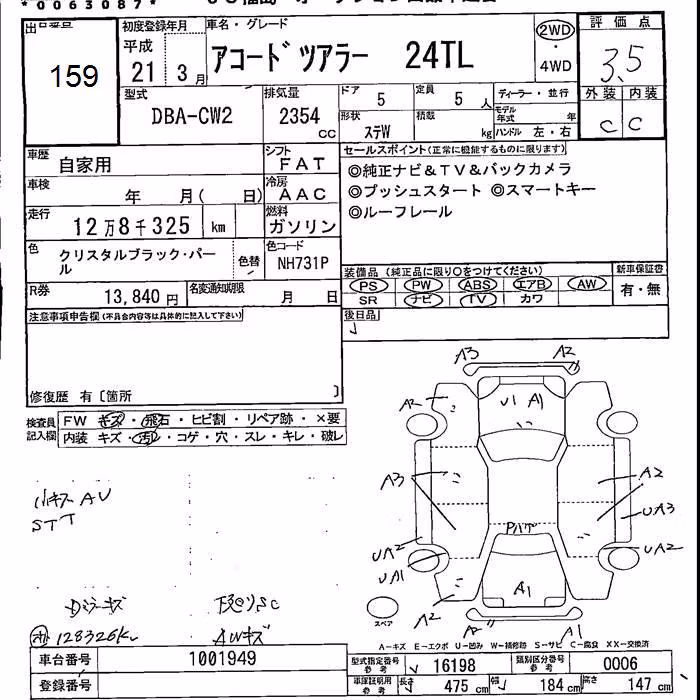 *0063087*
出品番号 159
初度登録年月 平成 21年 3月
車名・グレード アコードツアラー 24TL
2WD・4WD
評価点 3.5
外装 C 内装 C
型式 DBA-CW2
排気量 2354 cc
ドア 5
定員 5人
形状 ステW
積載 kg
ディーラー・並行
モデル年式 年
ハンドル 左・右
車歴 自家用
シフト FAT
車検 年 月( 日)
冷房 AAC
走行 12万8千325 km
燃料 ガソリン
色 クリスタルブラック・パール
色替
色コード NH731P
R券 13,840円
名変通知期限 月 日
セールスポイント(正常に機能するものに限ります)
◎純正ナビ&TV&バックカメラ
◎プッシュスタート ◎スマートキー
◎ルーフレール
装備品(純正品に限り○をつけてください)
PS PW ABS エアB AW
SR ナビ TV カワ
新車保証書 有・無
後日品
注意事項申告欄(不具合内容等は具体的に記入して下さい)
修復歴 有〔箇所 〕
検査員記入欄
FW キズ・飛石・ヒビ割・リペア跡・×要
内装 キズ・汚れ・コゲ・穴・スレ・キレ・破レ
A3 A2
A2 U1 A1
A3 A2
UA3
Pガラ
UA2 UA2
UA1
A1
A2 A2 A1
スペア
AU
STT
SC
128326K
AWキズ
A-キズ E-エクボ U-凹み W-補修跡 S-サビ C-腐食 XX-交換済
車台番号 1001949
登録番号
型式指定番号 参考 16198
類別区分番号 参考 0006
車庫証明用 参考 長さ 475cm 幅 184cm 高さ 147cm